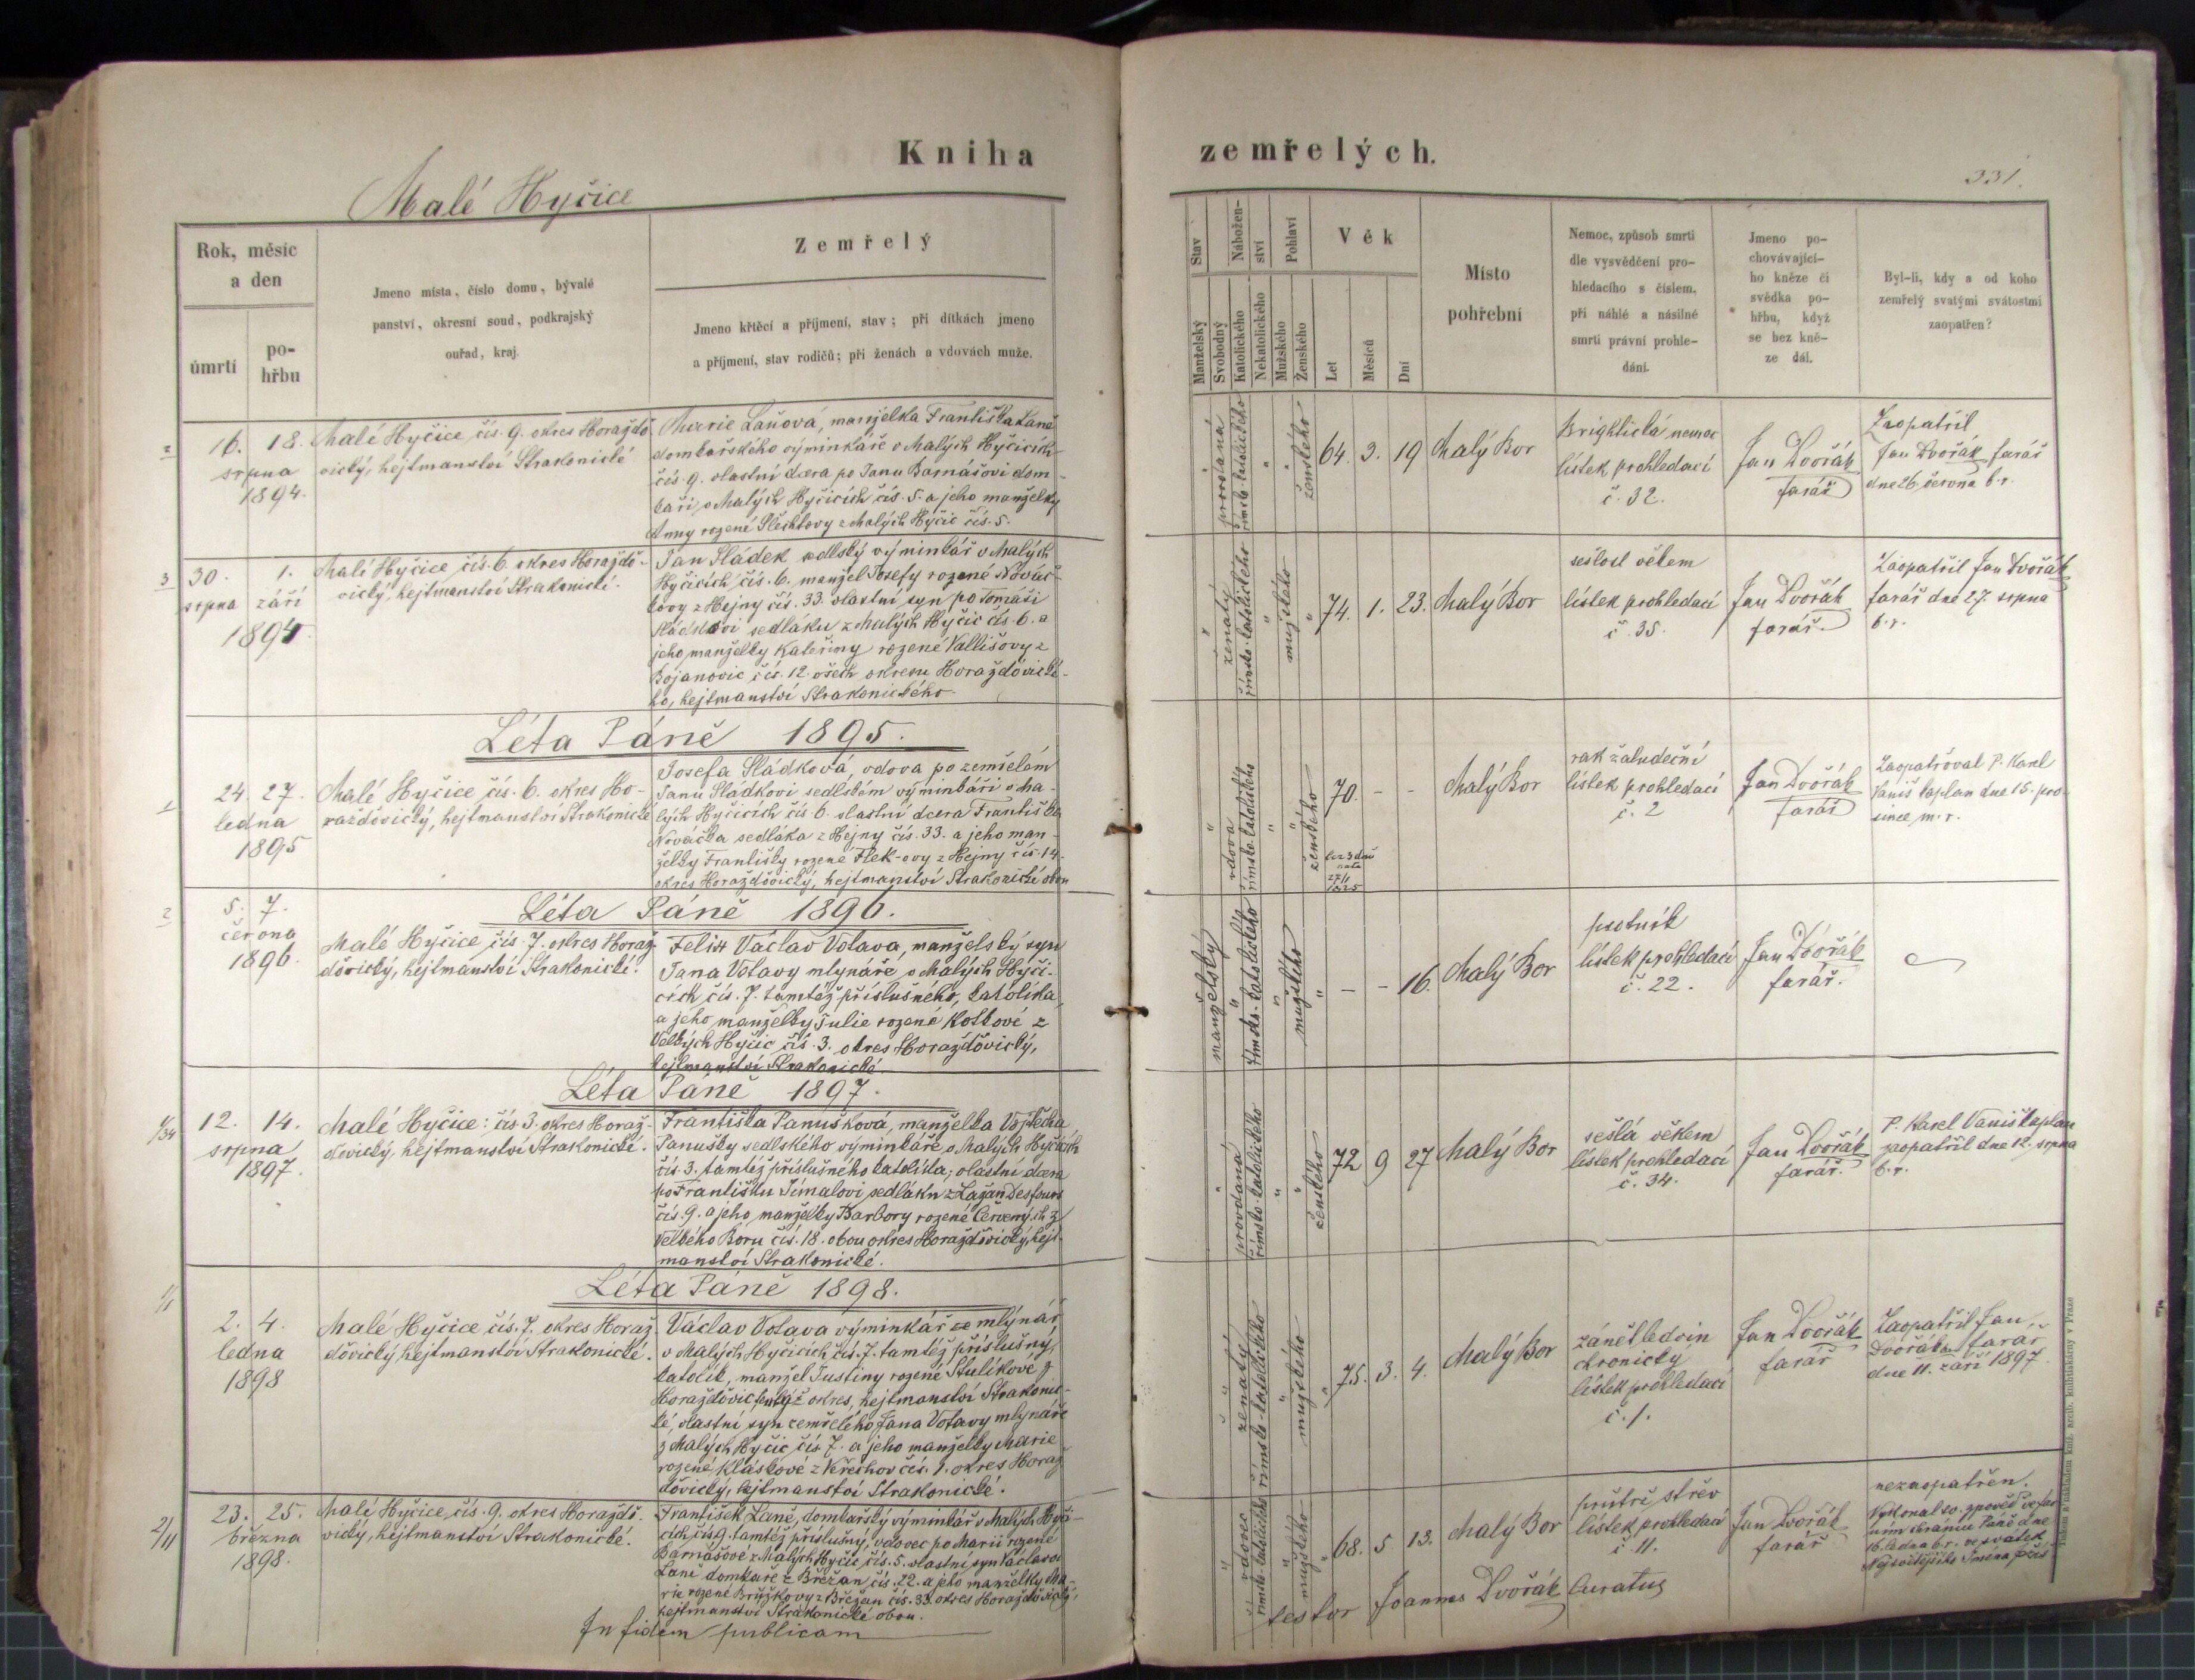 Kniha
Malé Hyčice
Rok, měsíc
a den
úmrtí
po-
hřbu
Jmeno místa, číslo domu, bývalé
panství, okresní soud, podkrajský
ouřad, kraj.
Zemřelý
Jmeno křtěcí a příjmení, stav; při dítkách jmeno
a příjmení, stav rodičů; při ženách a vdovách muže.
2
16. 18.
srpna
1894.
Malé Hyčice čís. 9. okres Horaždo-
vický, hejtmanství Strakonické
Marie Laňová, manželka Františka Laně
domkařského výminkáře v Malých Hyčicích
čís. 9. vlastní dcera po Janu Barnášovi dom-
káři v Malých Hyčicích čís. 5. a jeho manželky
Anny rozené Šlechtovy z Malých Hyčic čís. 5.
3
30. 1.
srpna září
1894.
Malé Hyčice čís. 6. okres Horaždo-
vický, hejtmanství Strakonické.
Jan Sládek sedlský výminkář v Malých
Hyčicích čís. 6. manžel Josefy rozené Nováč-
kovy z Hejny čís. 33. vlastní syn po Tomáši
Sládkovi sedláku z Malých Hyčic čís. 6. a
jeho manželky Kateřiny rozené Vallišovy z
Bojanovic čís. 12. všech okresu Horažďovické-
ho, hejtmanství Strakonického.
Léta Páně 1895.
1
24. 27.
ledna
1895
Malé Hyčice čís. 6. okres Ho-
raždovický, hejtmanství Strakonické
Josefa Sládková, vdova po zemřelém
Janu Sládkovi sedlském výminkáři v Ma-
lých Hyčicích čís 6. vlastní dcera Františka
Nováčka sedláka z Hejny čís. 33. a jeho man-
želky Františky rozené Flek-ovy z Hejny čís. 14.
okres Horažďovický, hejtmanství Strakonické obou
Léta Páně 1896.
2
5. 7.
června
1896.
Malé Hyčice čís. 7. okres Horaž-
ďovický, hejtmanství Strakonické.
Felix Václav Votava, manželský syn
Jana Votavy mlynáře v Malých Hyči-
cích čís. 7. tamtéž příslušného, katolíka
a jeho manželky Julie rozené Kotkové z
Velkých Hyčic čís. 3. okres Horažďovický,
hejtmanství Strakonické.
Léta Páně 1897.
1/34
12. 14.
srpna
1897.
Malé Hyčice: čís 3. okres Horaž-
ďovický, hejtmanství Strakonické.
Františka Panušková, manželka Vojtěcha
Panušky sedlského výminkáře v Malých Hyčicích
čís. 3. tamtéž příslušného katolíka; vlastní dcera
po Františku Šímalovi sedláku z Lažan Desfours
čís. 9. a jeho manželky Barbory rozené Červených z
Velkého Boru čís. 18. obou okres Horažďovický, hejt-
manství Strakonické.
Léta Páně 1898.
1/1
2. 4.
ledna
1898
Malé Hyčice čís. 7. okres Horaž-
ďovický, hejtmanství Strakonické.
Václav Votava výminkář mlynář
v Malých Hyčicích čís. 7. tamtéž příslušný,
katolík, manžel Justiny rozené Stulíkové z
Horažďovic, tentýž okres, hejtmanství Strakonic-
ké, vlastní syn zemřelého Jana Votavy mlynáře
z Malých Hyčic čís. 7. a jeho manželky Marie
rozené Kláskové z Křechov čís. 1. okres Horaž-
ďovický, hejtmanství Strakonické.
2/11
23. 25.
března
1898.
Malé Hyčice, čís. 9. okres Horaždo-
vický, hejtmanství Strakonické.
František Laně, domkařský výminkář v Malých Hyči-
cích čís. 9. tamtéž příslušný, vdovec po Marii rozené
Barnášové z Malých Hyčic, čís. 5. vlastní syn Václava
Laně domkaře z Břežan čís. 22. a jeho manželky Ma-
rie rozené Bružkovy z Břežan čís. 33. okres Horažďovický,
hejtmanství Strakonické obou.
In fidem publicam
zemřelých.
331.
Stav
Manželský
Svobodný
Nábožen-
ství
Katolického
Nekatolického
Pohlaví
Mužského
Ženského
Věk
Let
Měsíců
Dní
Místo
pohřební
Nemoc, způsob smrti
dle vysvědčení pro-
hledacího s číslem,
při náhlé a násilné
smrti právní prohle-
dání.
Jmeno po-
chovávající-
ho kněze či
svědka po-
hřbu, když
se bez kně-
ze dál.
Byl-li, kdy a od koho
zemřelý svatými svátostmi
zaopatřen?
" provdaná
římsko-katolického " "
ženského
64. 3. 19
Malý Bor
Brightická nemoc
lístek prohledací
č. 32.
Jan Dvořák
farář
Zaopatřil
Jan Dvořák farář
dne 26. června b.r.
" ženatý
římsko-katolického "
mužského "
74. 1. 23.
Malý Bor
sešlost věkem
lístek prohledací
č. 35.
Jan Dvořák
farář.
Zaopatřil Jan Dvořák
farář dne 27. srpna
b.r.
" vdova
římsko-katolického " "
ženského
70. - -
bez 3 dnů
Malý Bor
rak žaludeční
lístek prohledací
č. 2
Jan Dvořák
farář
Zaopatřoval P. Karel
Vaniš kaplan dne 15. pro-
since m.r.
manželský "
římsko-katolického "
mužského "
- - 16.
Malý Bor
psotník
lístek prohledací
č. 22.
Jan Dvořák
farář.
" provdaná
římsko-katolického " "
ženského
72 9 27
Malý Bor
sešlá věkem
lístek prohledací
č. 34.
Jan Dvořák
farář.
P. Karel Vaniš kaplan
zaopatřil dne 12. srpna
b.r.
" ženatý
římsko-katolického "
mužského "
75. 3. 4.
Malý Bor
zánět ledvin
chronický
lístek prohledací
č. 1.
Jan Dvořák
farář
Zaopatřil Jan
Dvořák, farář
dne 11. září 1897.
" vdovec
římsko-katolického "
mužského "
68. 5 13.
Malý Bor
průtrž střev
lístek prohledací
č 11.
Jan Dvořák
farář
nezaopatřen.
Vykonal sv. zpověď ve far-
ním chrámu Páně dne
16. ledna b.r. ve svátek
Nejsvětějšího Jména
testor Joannes Dvořák Curatus
Tiskem a nákladem kníž. arcib. knihtiskárny v Praze